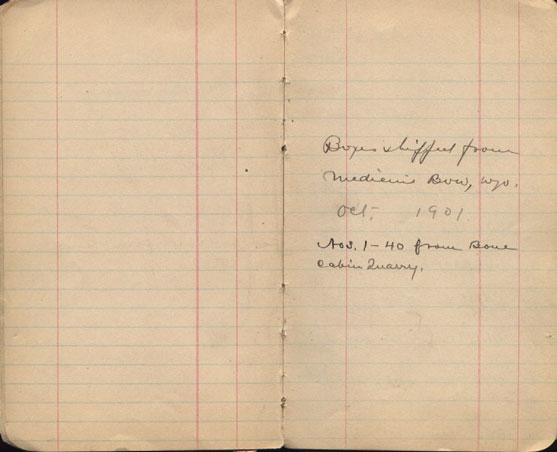 Boxes shipped from
Medicine Bow, Wyo.
Oct. 1901.
Nos. 1-40 from Bone
Cabin Quarry.